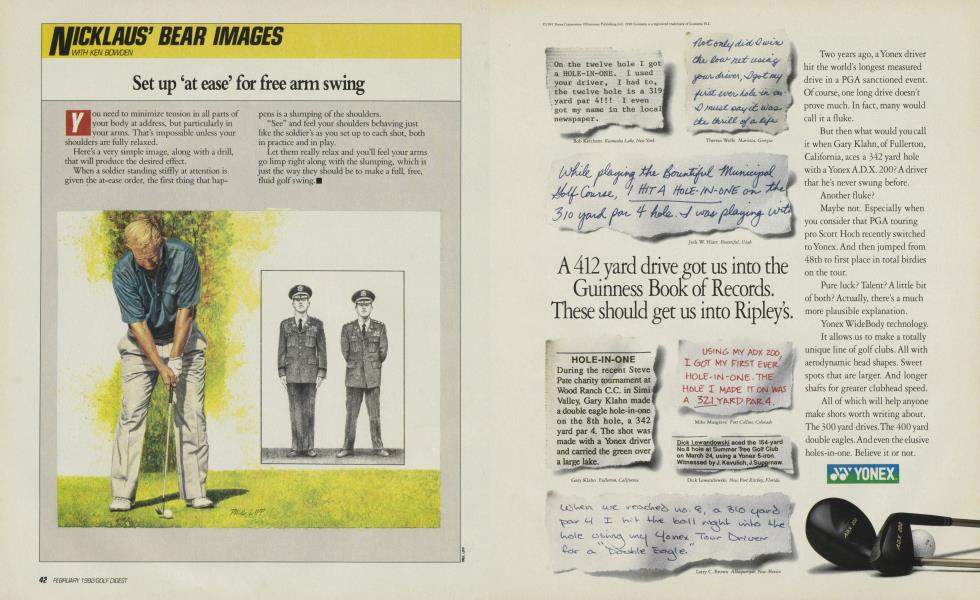 NICKLAUS' BEAR IMAGES
WITH KEN BOWDEN
Set up 'at ease' for free arm swing
You need to minimize tension in all parts of
your body at address, but particularly in
your arms. That's impossible unless your
shoulders are fully relaxed.
Here's a very simple image, along with a drill,
that will produce the desired effect.
When a soldier standing stiffly at attention is
given the at-ease order, the first thing that hap-
pens is a slumping of the shoulders.
"See" and feel your shoulders behaving just
like the soldier's as you set up to each shot, both
in practice and in play.
Let them really relax and you'll feel your arms
go limp right along with the slumping, which is
just the way they should be to make a full, free,
fluid golf swing.
PHIL LIPP
42 FEBRUARY 1992/GOLF DIGEST
On the twelve hole I got
a HOLE-IN-ONE. I used
your driver, I had to,
the twelve hole is a 319
yard par 4!!! I even
got my name in the local
newspaper.
Bob Ketcham Kiamesha Lake, New York
Not only did I win
the low net using
your driver, I got my
first ever hole-in-on
I must say it was
the thrill of a life
Theresa Wells Marietta, Georgia
While playing the Bountiful Municipal
Golf Course, I HIT A HOLE-IN-ONE on the
310 yard par 4 hole. I was playing with
Jack W. Hiatt Bountiful, Utah
A 412 yard drive got us into the
Guinness Book of Records.
These should get us into Ripley's.
HOLE-IN-ONE
During the recent Steve
Pate charity tournament at
Wood Ranch C.C. in Simi
Valley, Gary Klahn made
a double eagle hole-in-one
on the 8th hole, a 342
yard par 4. The shot was
made with a Yonex driver
and carried the green over
a large lake.
Gary Klahn Fullerton, California
USING MY ADX 200,
I GOT MY FIRST EVER
HOLE-IN-ONE. THE
HOLE I MADE IT ON WAS
A 321 YARD PAR 4.
Mike Musgrave Fort Collins, Colorado
Dick Lewandowski aced the 154-yard
No.8 hole at Summer Tree Golf Club
on March 24, using a Yonex 5-iron.
Witnessed by J. Kavulich, J. Supernaw.
Dick Lewandowski New Port Richey, Florida
When we reached no. 8, a 310 yard
par 4 I hit the ball right into the
hole using my Yonex Tour Driver
for a "Double Eagle."
Larry C. Brown Albuquerque, New Mexico
Two years ago, a Yonex driver
hit the world's longest measured
drive in a PGA sanctioned event.
Of course, one long drive doesn't
prove much. In fact, many would
call it a fluke.
But then what would you call
it when Gary Klahn, of Fullerton,
California, aces a 342 yard hole
with a Yonex A.D.X. 200? A driver
that he's never swung before.
Another fluke?
Maybe not. Especially when
you consider that PGA touring
pro Scott Hoch recently switched
to Yonex. And then jumped from
48th to first place in total birdies
on the tour.
Pure luck? Talent? A little bit
of both? Actually, there's a much
more plausible explanation.
Yonex WideBody technology.
It allows us to make a totally
unique line of golf clubs. All with
aerodynamic head shapes. Sweet
spots that are larger. And longer
shafts for greater clubhead speed.
All of which will help anyone
make shots worth writing about.
The 300 yard drives. The 400 yard
double eagles. And even the elusive
holes-in-one. Believe it or not.
YONEX
ADX 200
ADX 200